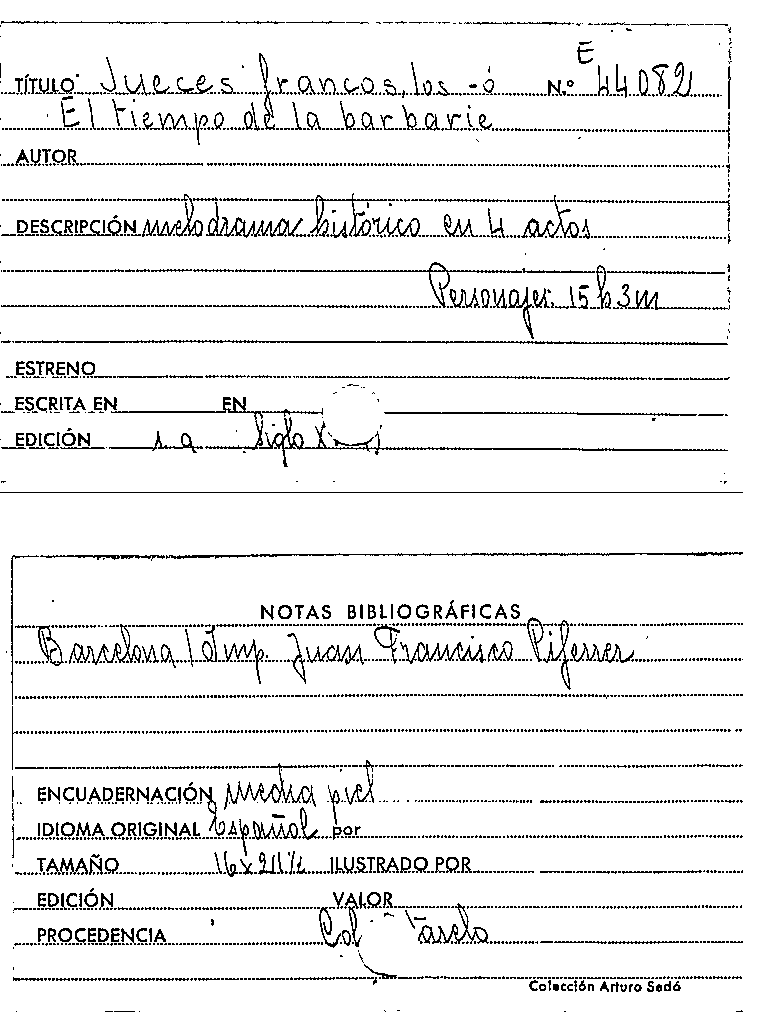 E
TÍTULO Jueces francos, los - ó N.º 44082
El tiempo de la barbarie
AUTOR
DESCRIPCIÓN melodrama histórico en 4 actos
Personajes: 15 h 3 m
ESTRENO
ESCRITA EN EN
EDICIÓN s. a. Siglo
NOTAS BIBLIOGRÁFICAS
Barcelona / Imp. Juan Francisco Piferrer
ENCUADERNACIÓN media piel
IDIOMA ORIGINAL Español por
TAMAÑO ILUSTRADO POR
EDICIÓN VALOR
PROCEDENCIA Col
Colección Arturo Sedó